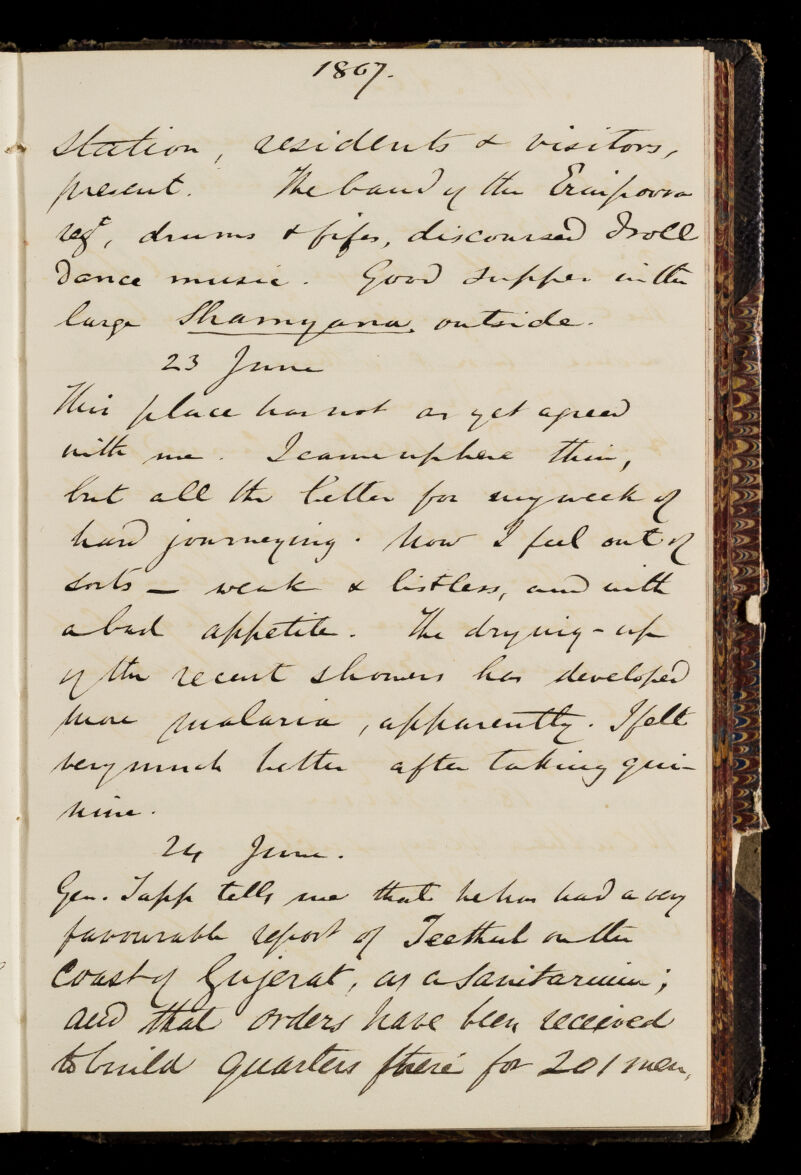 1867.
station, residents & visitors,
present. The band of the Erinpoora
regt, drums & fifes, discoursed droll
dance music. Good supper in the
large Shamyana, outside.
23 June
This place has not as yet agreed
with me. I came up here thin,
but all the better for my week of
hard journeying. Now I feel out of
sorts – weak & listless, and with
a bad appetite. The drying-up
of the recent showers has developed
more malaria, apparently. I felt
very much better after taking qui-
nine.
24 June.
Gen. Tapp tells me that he has had a very
favourable report of Teethul on the
Coast of Gujerat, as a Sanitarium;
and that orders have been received
to build quarters there for 201 men,